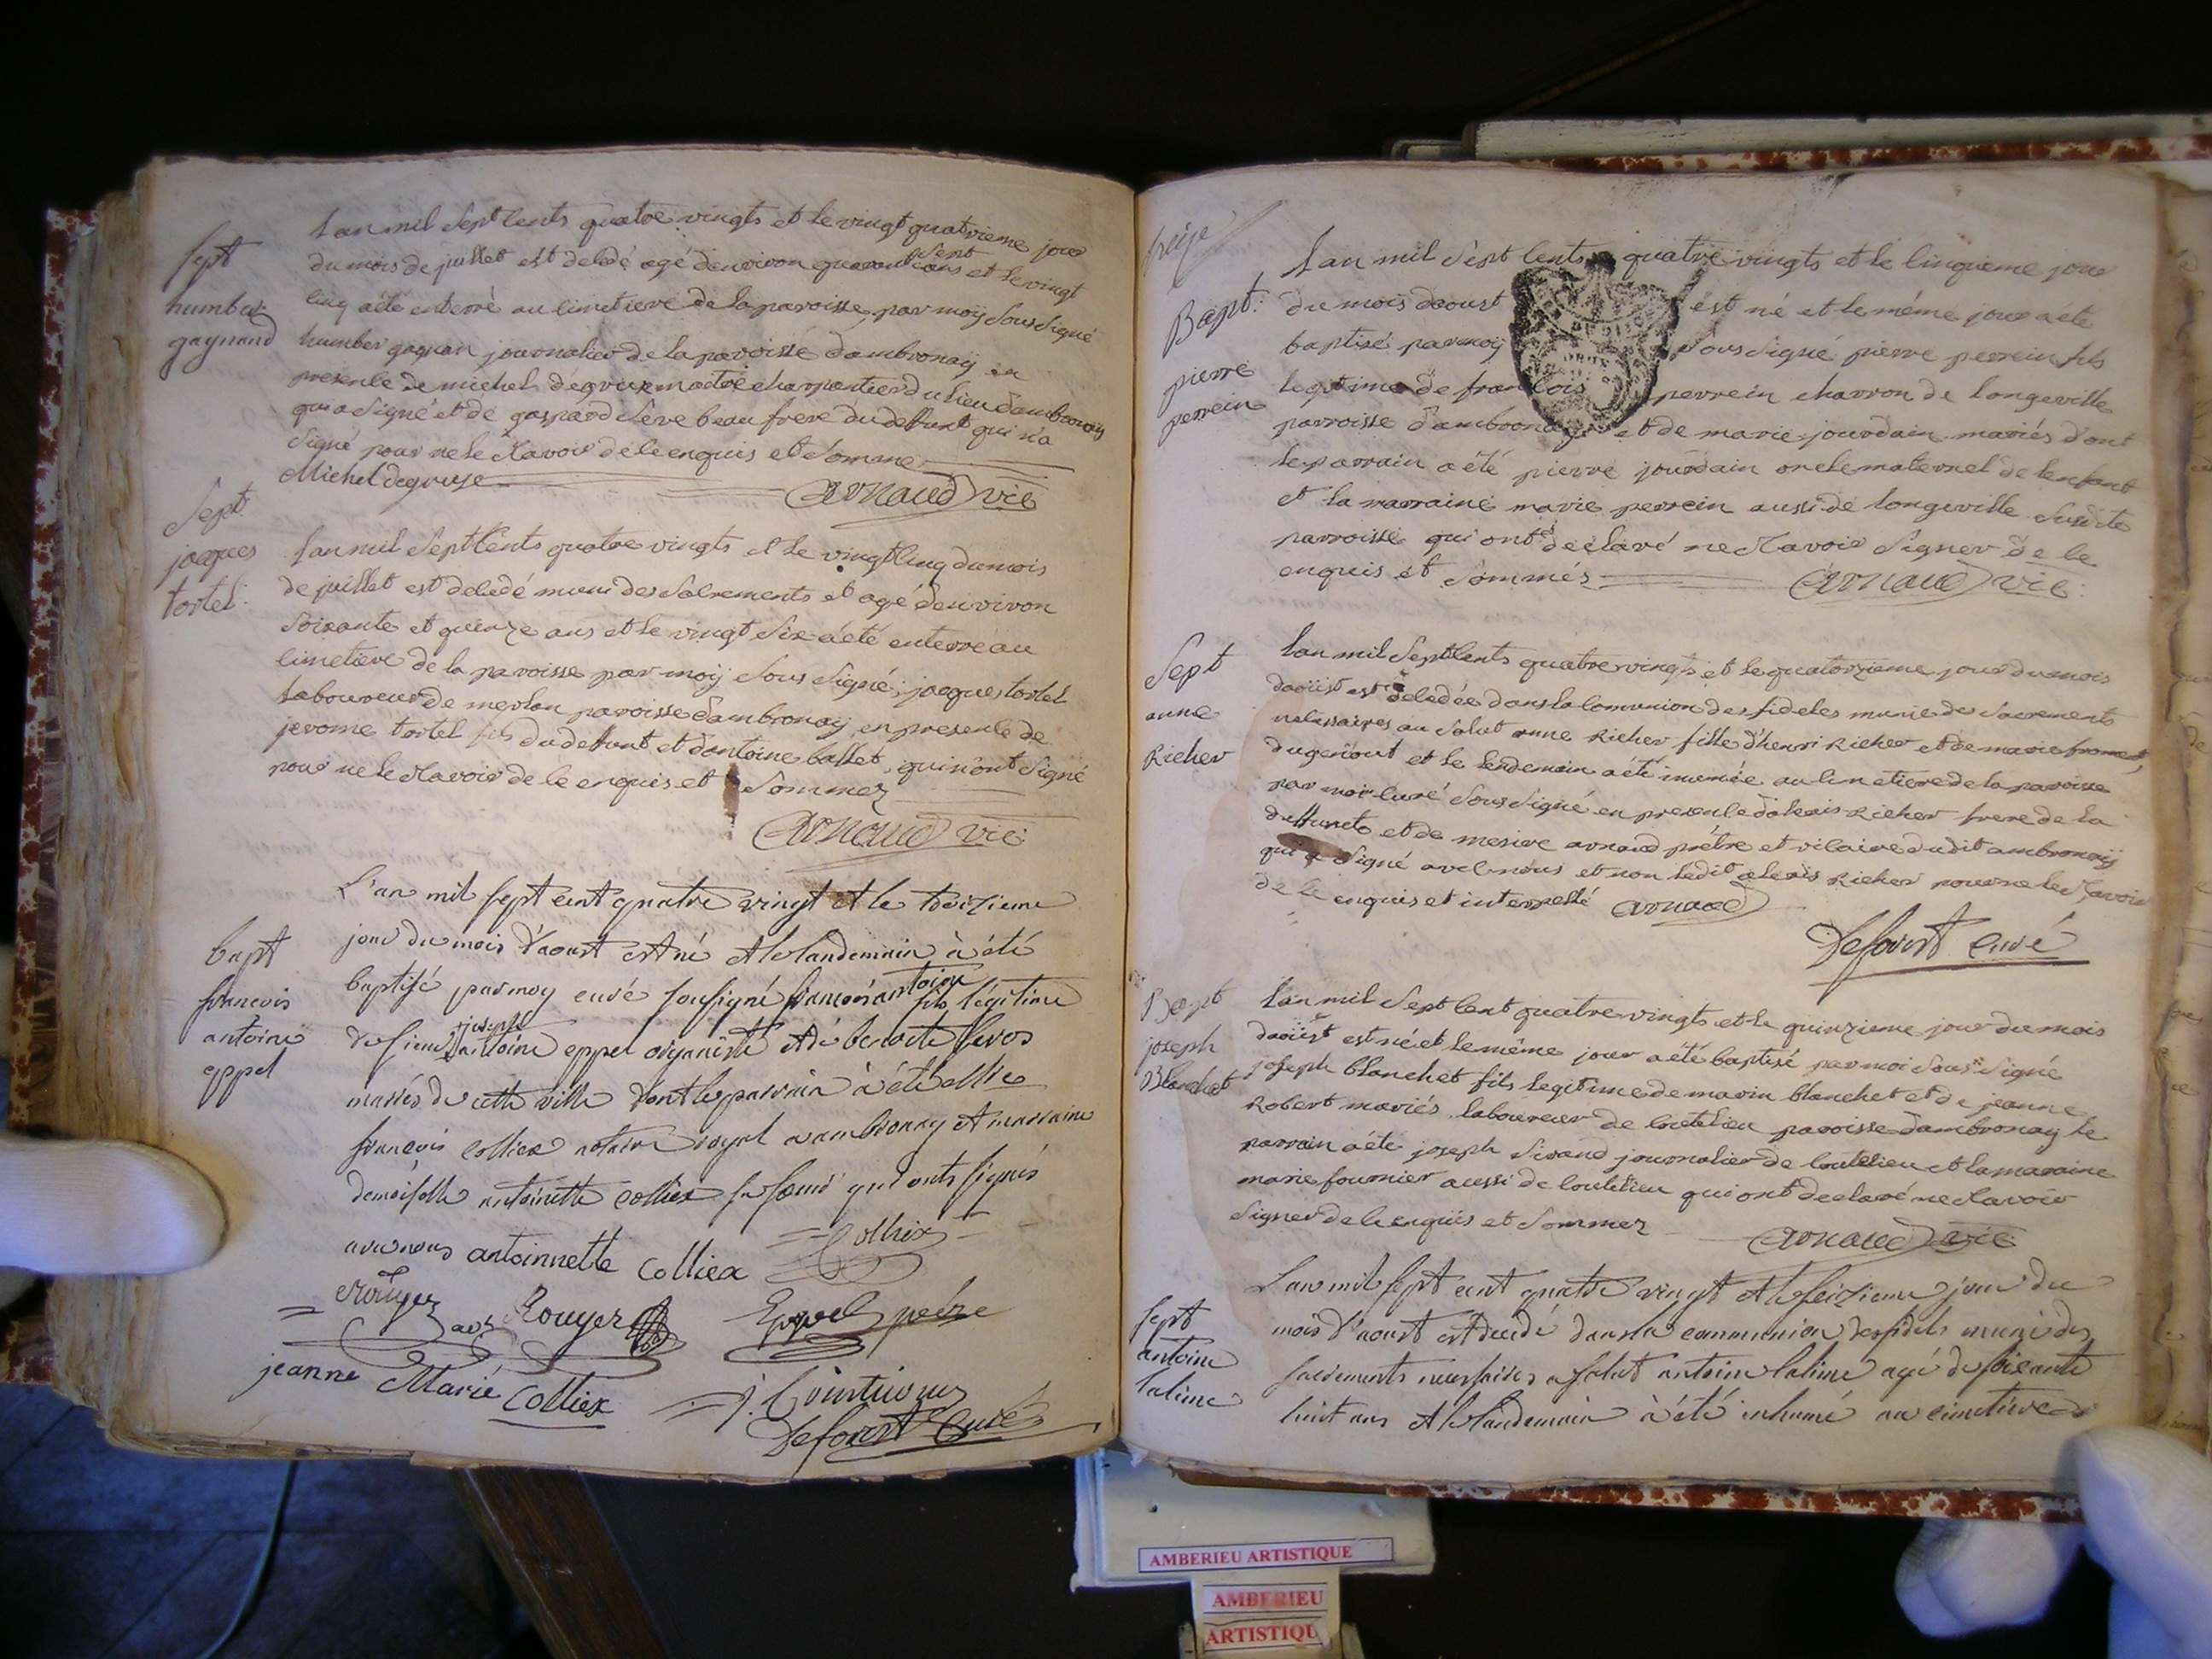 Sept
humber
gagnand
Lan mil Sept Cents quatre vingts et le vingt quatrieme jour
du mois de juillet est decedé agé denviron quarante Sept ans et le vingt
cinq a été enterré au cimetiere de la paroisse, par moy Sous Signé
humber gagnan journalier de la paroisse dambronay en
presence de michel degruze maitre charpantier du lieu dambronay
qui a Signé et de gaspard Seve beau frere du deffunt qui n'a
Signé pour ne le Scavoir de ce enquis et Sommé
Michel degruse
Arnaud vic
Sept
jacques
tortel
Lan mil Sept Cents quatre vingts et le vingt Cinq du mois
de juillet est decedé muni des Sacrements et agé denviron
Soixante et quinze ans et le vingt Six a été enterré au
cimetiere de la paroisse par moy Sous Signé, jacques tortel
laboureur de merlan paroisse dambronay, en presence de
jerome tortel fils du deffunt et dantoine ballet, qui n'ont Signé
pour ne le Scavoir de ce enquis et Sommez
Arnaud vic:
bapt
francois
antoine
eppel
L'an mil sept cent quatre vingt et le treizieme
jour du mois d'aoust est né et le landemain à été
baptisé par moy curé sousigné francois antoine fils légitime
de sieur joseph antoine eppel organiste et de benoite
mariés de cette ville dont le parrain à été
francois Colliex notaire royal a ambronay et marraine
demoiselle antoinette Colliex sa qui ont signés
avec nous antoinnette Colliex
Colliex
Rouyer
Rouyer
Eppel peére
jeanne Marie Colliex
Deforest Curé
Bapt:
pierre
perrein
Lan mil Sept Cents quatre vingts et le Cinquieme jour
du mois daoust est né et le même jour a été
baptisé par moy Sous Signé pierre perrein fils
legitime de francois perrein charron de Longeville
parroisse dambronay et de marie jourdain mariés dont
le parrain a été pierre jourdain oncle maternel de lenfant
et la marraine marie perrein aussi de longeville Susdite
parroisse qui ont declaré ne Scavoir Signer de ce
enquis et Sommés
Arnaud vic:
Sept
anne
Richer
Lan mil Sept Cents quatre vingts et le quatorzieme jour du mois
daoüst est decedée dans la Comunion des fideles munie des Sacrements
necessaires au Salut anne Richer fille d'henri Richer et de marie froment,
dugerrout et le lendemain a été inumée au Cimetiere de la paroisse
par moi Curé Sous Signé en presence dalexis Richer frere de la
deffuncte et de mesire arnaud prétre et vicaire dudit ambronaÿ
qui a Signé avec nous et non ledit alexis Richer pour ne le Scavoir
de ce enquis et interpellé Arnaud
Deforest curé
Bapt
joseph
Blanchet
Lan mil Sept Cent quatre vingts et le quinzieme jour du mois
daoüst est né et le même jour a été baptisé par moi Sous Signé
joseph blanchet fils legitime de marin blanchet et de jeanne
Robert mariés, laboureur de Coutelieu paroisse dambronay le
parrain a été joseph Sivand journalier de Coutelieu et la maraine
marie fournier aussi de Coutelieu qui ont declaré ne Scavoir
Signer de ce enquis et Sommez
Arnaud vic
Sept
antoine
laline
L'an mil sept cent quatre vingt et le seizieme jour du
mois d'aoust est decedé dans la communion des fidels muni des
sacrements necessaires a salut antoine laline agé de soixante
huit ans et le landemain à été inhumé au cimetiere
AMBERIEU ARTISTIQUE
AMBERIEU
ARTISTIQU